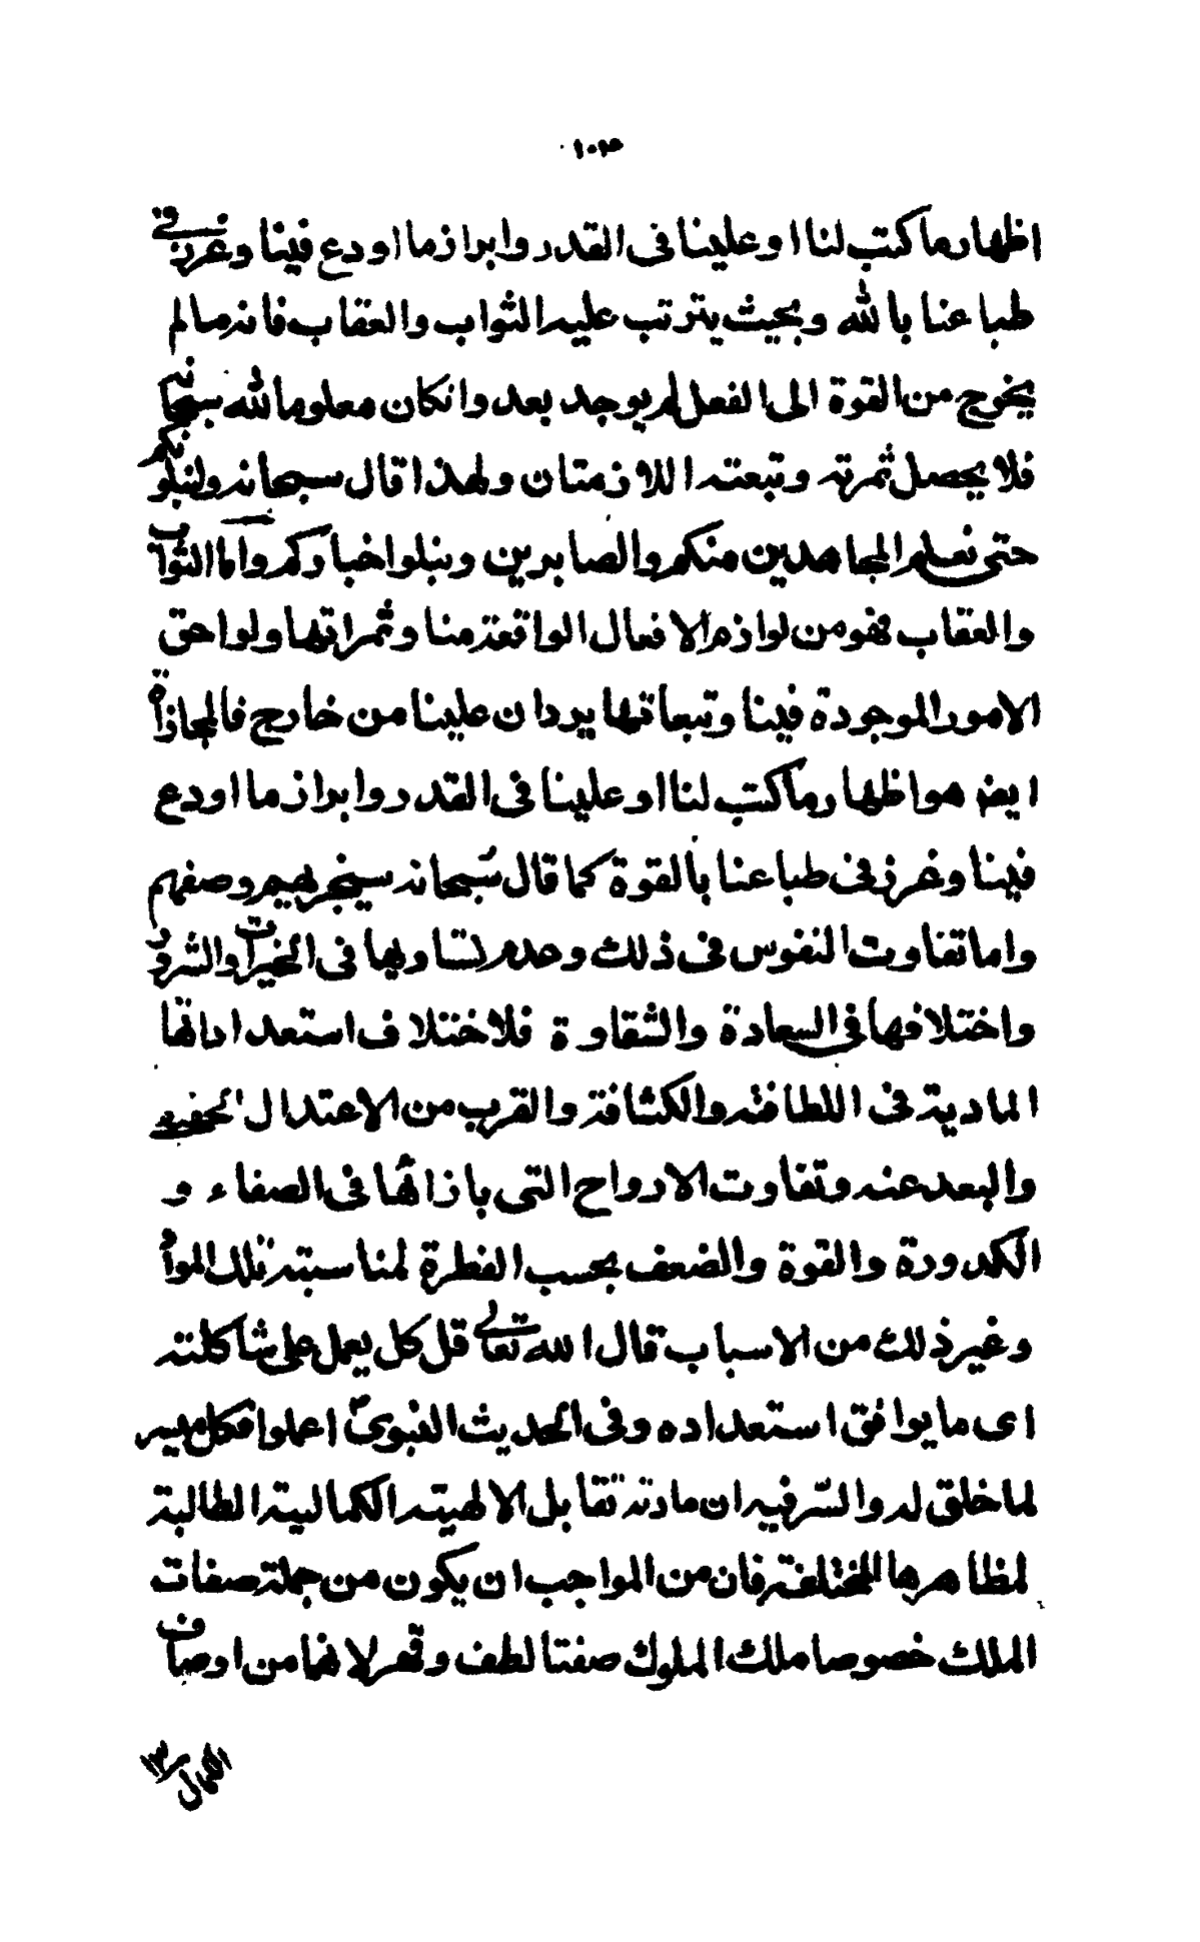 ١٠٣
اظهار ما كتب لنا او علينا فى القدر وابراز ما اودع فينا وغرز فى
طباعنا بالله وبحيث يترتب عليه الثواب والعقاب فانه ما لم
يخرج من القوة الى الفعل لم يوجد بعد وانكان معلوما لله سبحانه
فلا يحصل ثمرته وتبعته اللازمتان ولهذا قال سبحانه ولنبلونكم
حتى نعلم المجاهدين منكم والصابرين ونبلوا خباركم واما الثواب
والعقاب فهو من لوازم الافعال الواقعة منا وثمراتها ولواحق
الامور الموجودة فينا وتبعاتها يردان علينا من خارج فالمجازاة
ايضا هو اظهار ما كتب لنا او علينا فى القدر وابراز ما اودع
فينا وغرز فى طباعنا بالقوة كما قال سبحانه سيجزيهم وصفهم
واما تفاوت النفوس فى ذلك وعدم تساويها فى الخيرات والشرور
واختلافها فى السعادة والشقاوة فلاختلاف استعداداتها
المادية فى اللطافة والكثافة والقرب من الاعتدال الحقيقى
والبعد عنه وتفاوت الارواح التى بازائها فى الصفاء و
الكدورة والقوة والضعف بحسب الفطرة لمناسبة تلك المواد
وغير ذلك من الاسباب قال الله تعالى قل كل يعمل على شاكلته
اى ما يوافق استعداده وفى الحديث النبوى اعملوا فكل ميسر
لما خلق له والسر فيه ان مادته تقابل الالهية الكمالية الطالبة
لمظاهرها المختلفة فان من الواجب ان يكون من جملة صفات
الملك خصوصا ملك الملوك صفتا لطف وقهر لانهما من اوصاف
الكمال
١٣